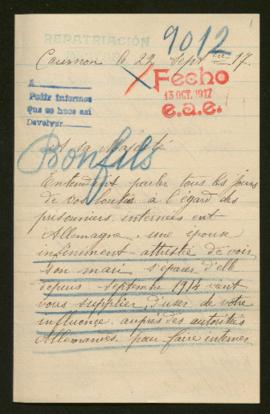 REPATRIACIÓN
9012
Cournon le 22 Sept 17.
Fecho
13 OCT. 1917
e.a.e.
A
Pedir informes
que se hace así
Devolver
A sa Majesté
Bonfils
Entendant parler tous les jours
de vos bontés à l'égard des
prisonniers internés en
Allemagne, une épouse
infiniment attristée de voir
son mari séparé d'elle
depuis septembre 1914 vient
vous supplier d'user de votre
influence auprès des autorités
Allemandes pour faire interner